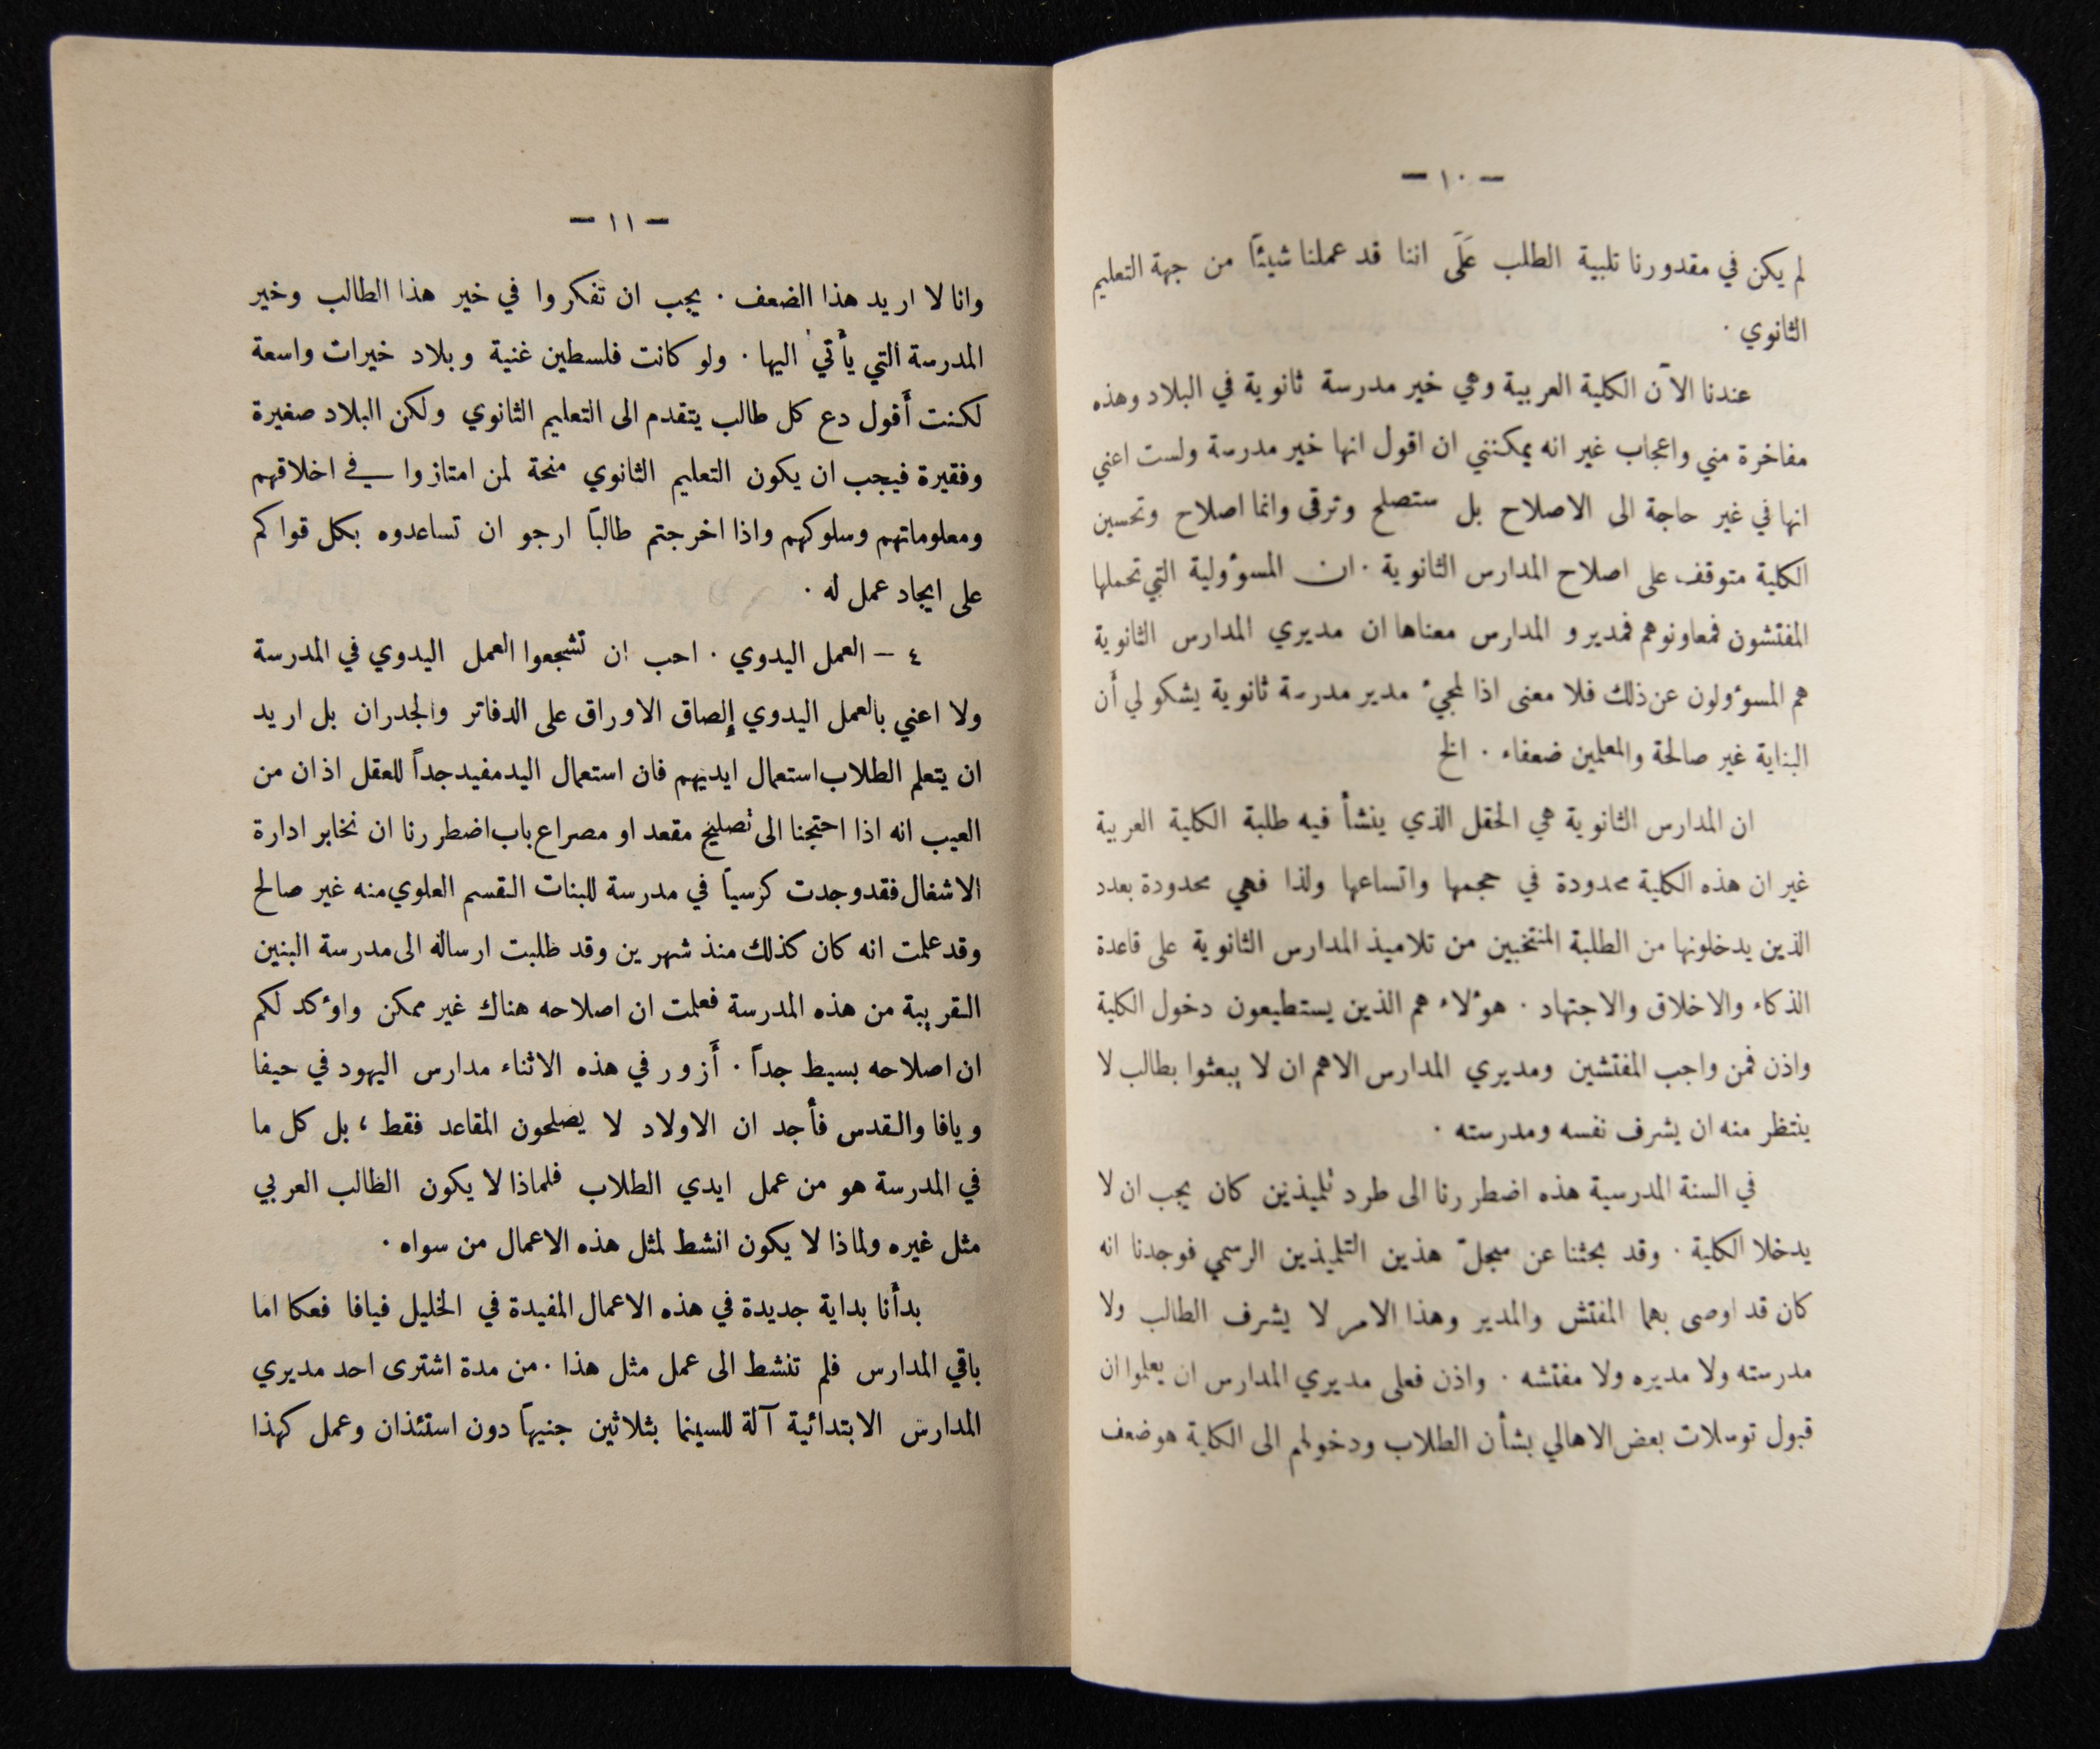 — ١٠ —
لم يكن في مقدورنا تلبية الطلب عَلَى اننا قد عملنا شيئاً من جهة التعليم
الثانوي .
عندنا الآن الكلية العربية وهي خير مدرسة ثانوية في البلاد وهذه
مفاخرة مني واعجاب غير انه يمكنني ان اقول انها خير مدرسة ولست اعني
انها في غير حاجة الى الاصلاح بل ستصلح وترقى وانما اصلاح وتحسين
الكلية متوقف على اصلاح المدارس الثانوية . ان المسوُولية التي تحملها
المفتشون فمعاونوهم فمديرو المدارس معناها ان مديري المدارس الثانوية
هم المسوُولون عن ذلك فلا معنى اذا لمجيء مدير مدرسة ثانوية يشكو لي أن
البناية غير صالحة والمعلمين ضعفاء . الخ
ان المدارس الثانوية هي الحقل الذي ينشأ فيه طلبة الكلية العربية
غير ان هذه الكلية محدودة في حجمها واتساعها ولذا فهي محدودة بعدد
الذين يدخلونها من الطلبة المنتخبين من تلاميذ المدارس الثانوية على قاعدة
الذكاء والاخلاق والاجتهاد . هوُلاء هم الذين يستطيعون دخول الكلية
واذن فمن واجب المفتشين ومديري المدارس الاهم ان لا يبعثوا بطالب لا
ينتظر منه ان يشرف نفسه ومدرسته .
في السنة المدرسية هذه اضطررنا الى طرد تلميذين كان يجب ان لا
يدخلا الكلية . وقد بحثنا عن سجلّ هذين التلميذين الرسمي فوجدنا انه
كان قد اوصى بهما المفتش والمدير وهذا الامر لا يشرف الطالب ولا
مدرسته ولا مديره ولا مفتشه . واذن فعلى مديري المدارس ان يعلموا ان
قبول توسلات بعض الاهالي بشأن الطلاب ودخولهم الى الكلية هو ضعف
— ١١ —
وانا لا اريد هذا الضعف . يجب ان تفكروا في خير هذا الطالب وخير
المدرسة التي يأتي اليها . ولو كانت فلسطين غنية وبلاد خيرات واسعة
لكنت أَقول دع كل طالب يتقدم الى التعليم الثانوي ولكن البلاد صغيرة
وفقيرة فيجب ان يكون التعليم الثانوي منحة لمن امتازوا في اخلاقهم
ومعلوماتهم وسلوكهم واذا اخرجتم طالباً ارجو ان تساعدوه بكل قواكم
على ايجاد عمل له .
٤ — العمل اليدوي . احب ان تشجعوا العمل اليدوي في المدرسة
ولا اعني بالعمل اليدوي إلصاق الاوراق على الدفاتر والجدران بل اريد
ان يتعلم الطلاب استعمال ايديهم فان استعمال اليد مفيد جداً للعقل اذ ان من
العيب انه اذا احتجنا الى تصليح مقعد او مصراع باب اضطررنا ان نخابر ادارة
الاشغال فقد وجدت كرسياً في مدرسة للبنات القسم العلوي منه غير صالح
وقد علمت انه كان كذلك منذ شهرين وقد طلبت ارساله الى مدرسة البنين
القريبة من هذه المدرسة فعلمت ان اصلاحه هناك غير ممكن واوُكد لكم
ان اصلاحه بسيط جداً . أَزور في هذه الاثناء مدارس اليهود في حيفا
ويافا والقدس فأجد ان الاولاد لا يصلحون المقاعد فقط ، بل كل ما
في المدرسة هو من عمل ايدي الطلاب فلماذا لا يكون الطالب العربي
مثل غيره ولماذا لا يكون انشط لمثل هذه الاعمال من سواه .
بدأنا بداية جديدة في هذه الاعمال المفيدة في الخليل فيافا فعكا اما
باقي المدارس فلم تنشط الى عمل مثل هذا . من مدة اشترى احد مديري
المدارس الابتدائية آلة للسينما بثلاثين جنيهاً دون استئذان وعمل كهذا